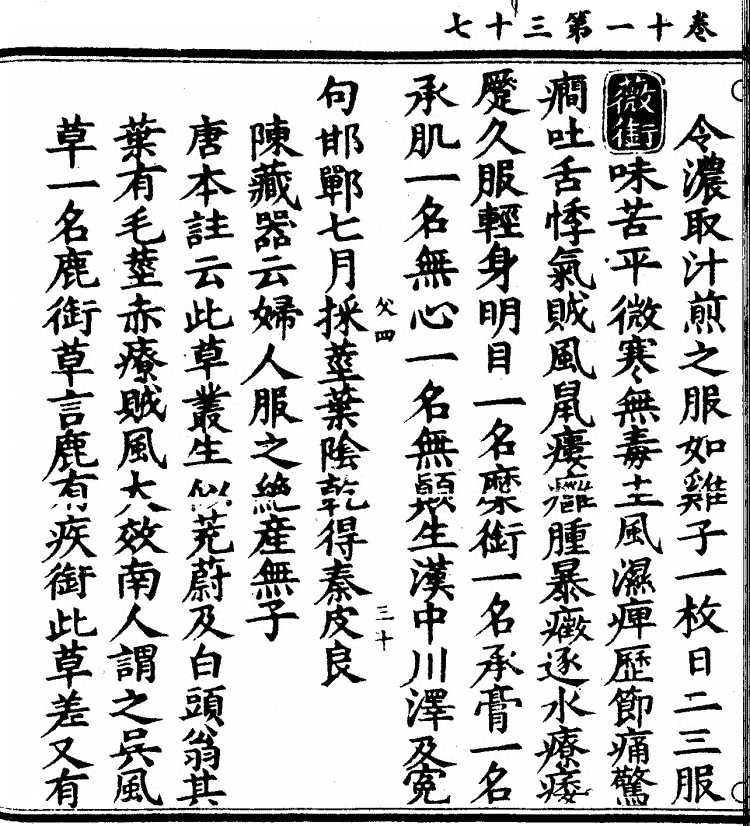 卷十一第三十七
令濃取汁煎之服如雞子一枚日二三服
薇銜味苦平微寒無毒主風濕痺歷節痛驚
癇吐舌悸氣賊風鼠瘻癰腫暴癥逐水療痿
蹷久服輕身明目一名麋銜一名承膏一名
承肌一名無心一名無顛生漢中川澤及寃
句邯鄲七月採莖葉陰乾得秦皮良
父四
三十
陳藏器云婦人服之絶産無子
唐本註云此草叢生似茺蔚及白頭翁其
葉有毛莖赤療賊風大效南人謂之吳風
草一名鹿銜草言鹿有疾銜此草差又有